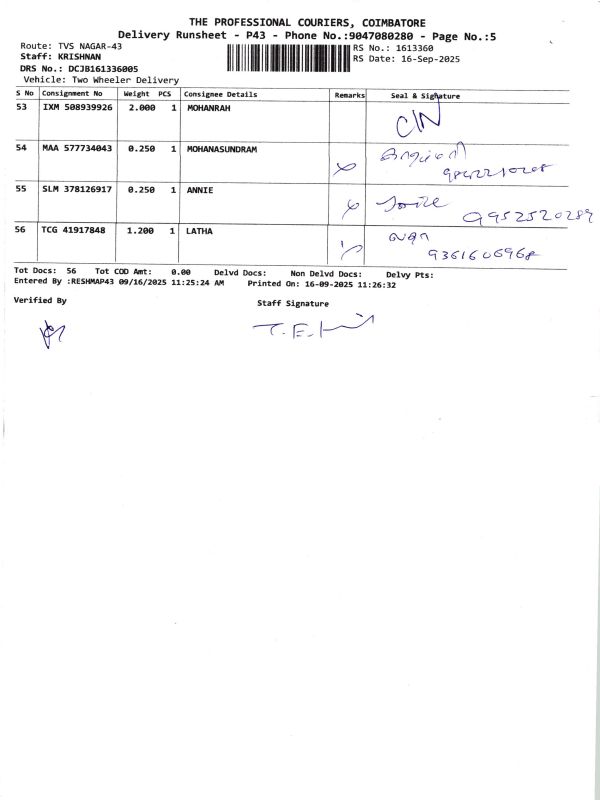 THE PROFESSIONAL COURIERS, COIMBATORE
Delivery Runsheet - P43 - Phone No.:9047080280 - Page No.:5
Route: TVS NAGAR-43
RS No.: 1613360
Staff: KRISHNAN
RS Date: 16-Sep-2025
DRS No.: DCJB161336005
Vehicle: Two Wheeler Delivery
S No Consignment No Weight PCS Consignee Details Remarks Seal & Signature
53 IXM 508939926 2.000 1 MOHANRAH
54 MAA 577734043 0.250 1 MOHANASUNDRAM
55 SLM 378126917 0.250 1 ANNIE
9952520289
56 TCG 41917848 1.200 1 LATHA
லதா
9361606968
Tot Docs: 56 Tot COD Amt: 0.00 Delvd Docs: Non Delvd Docs: Delvy Pts:
Entered By :RESHMAP43 09/16/2025 11:25:24 AM Printed On: 16-09-2025 11:26:32
Verified By
Staff Signature